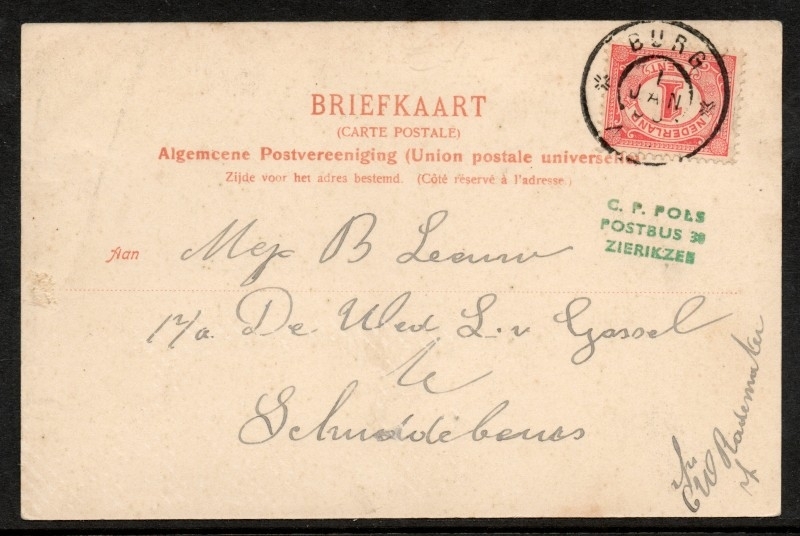 BURG
1
JAN
NEDERLAND
CENT
1
BRIEFKAART
(CARTE POSTALE)
Algemeene Postvereeniging (Union postale universelle)
Zijde voor het adres bestemd. (Côté réservé à l'adresse.)
C. P. POLS
POSTBUS 38
ZIERIKZEE
Aan Mej B Leeuw
p/a. De Wed L. v Gassel
te
Schuddebeurs
W Rademaker